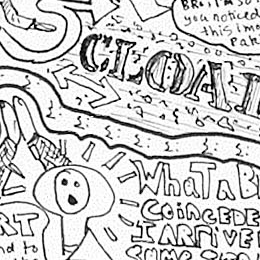 you noticed
this im
Par
CLOA
WhaT a B
CoinceDe
I ARRIVE
SAME
RT
nd to